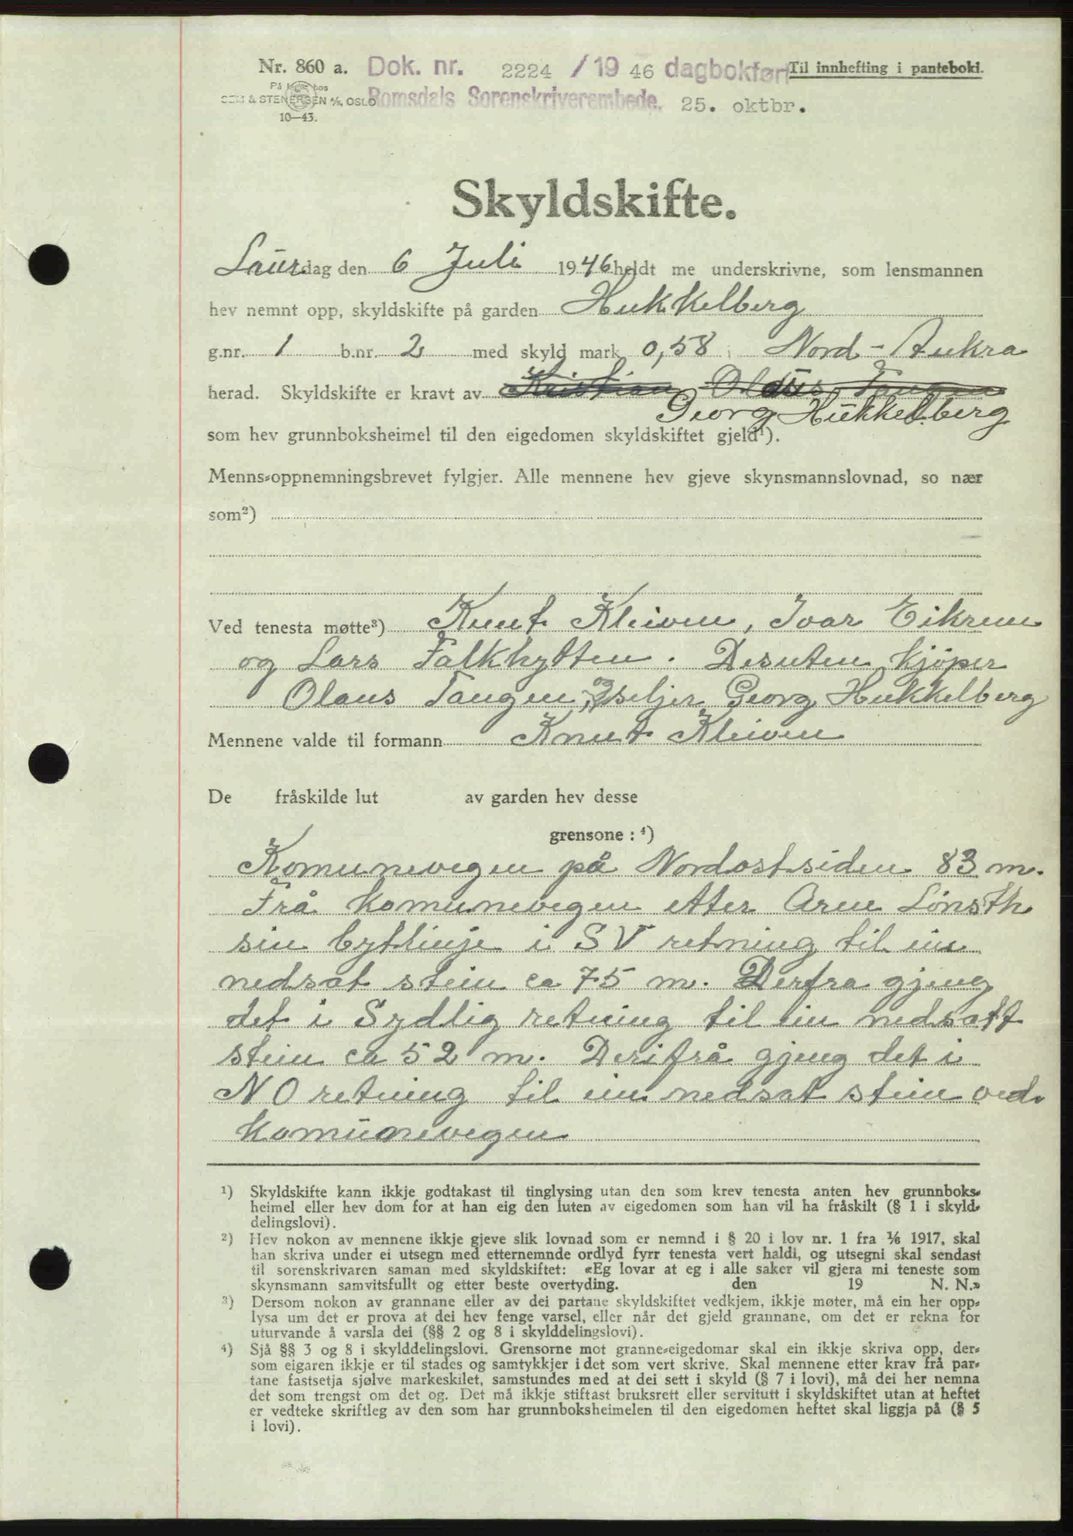 Nr. 860 a. Dok. nr. 2224 /19 46 dagbokført Til innhefting i pantebok.
SEM & STENERSEN A/S, OSLO Romsdals Sorenskriverembede. 25. oktbr.
10—43.
Skyldskifte.
Laurdag den 6 Juli 1946 heldt me underskrivne, som lensmannen
hev nemnt opp, skyldskifte på garden Hukkelberg
g.nr. 1 b.nr. 2 med skyld mark 0,58 Nord-Aukra
herad. Skyldskifte er kravt av Kristian Olaus Tangen
Georg Hukkelberg
som hev grunnboksheimel til den eigedomen skyldskiftet gjeld¹).
Menns-oppnemningsbrevet fylgjer. Alle mennene hev gjeve skynsmannslovnad, so nær
som²)
Ved tenesta møtte³) Knut Kleiven, Ivar Eikrem
og Lars Falkhytten. Desuten kjøper
Olaus Tangen, og seljer Georg Hukkelberg
Mennene valde til formann Knut Kleiven
De fråskilde lut av garden hev desse
grensone: ⁴)
Komunevegen på Nordostsiden 83 m.
Frå komunevegen etter Arne Lønseth
sin bytlinje i SV retning til ein
nedsat stein ca 75 m. Derfra gjeng
det i Sydlig retning til ein nedsatt
stein ca 52 m. Derifrå gjeng det i
NO retning til ein nedsat stein ved
komunevegen
¹) Skyldskifte kann ikkje godtakast til tinglysing utan den som krev tenesta anten hev grunnboks-
heimel eller hev dom for at han eig den luten av eigedomen som han vil ha fråskilt (§ 1 i skyld-
delingslovi).
²) Hev nokon av mennene ikkje gjeve slik lovnad som er nemnd i § 20 i lov nr. 1 fra 1/6 1917, skal
han skriva under ei utsegn med etternemnde ordlyd fyrr tenesta vert haldi, og utsegni skal sendast
til sorenskrivaren saman med skyldskiftet: «Eg lovar at eg i alle saker vil gjera mi teneste som
skynsmann samvitsfullt og etter beste overtyding. den 19 N. N.»
³) Dersom nokon av grannane eller av dei partane skyldskiftet vedkjem, ikkje møter, må ein her opp-
lysa um det er prova at dei hev fenge varsel, eller når det gjeld grannane, om det er rekna for
uturvande å varsla dei (§§ 2 og 8 i skylddelingslovi).
⁴) Sjå §§ 3 og 8 i skylddelingslovi. Grensorne mot granne-eigedomar skal ein ikkje skriva opp, der-
som eigaren ikkje er til stades og samtykkjer i det som vert skrive. Skal mennene etter krav frå par-
tane fastsetja sjølve markeskilet, samstundes med at dei sett i skyld (§ 7 i lovi), må dei her nemna
det som trengst om det og. Det må ikkje stiftast bruksrett eller servitutt i skyldskiftet utan at heftet
er vedteke skriftleg av den som har grunnboksheimelen til den eigedomen heftet skal liggja på (§ 5
i lovi).